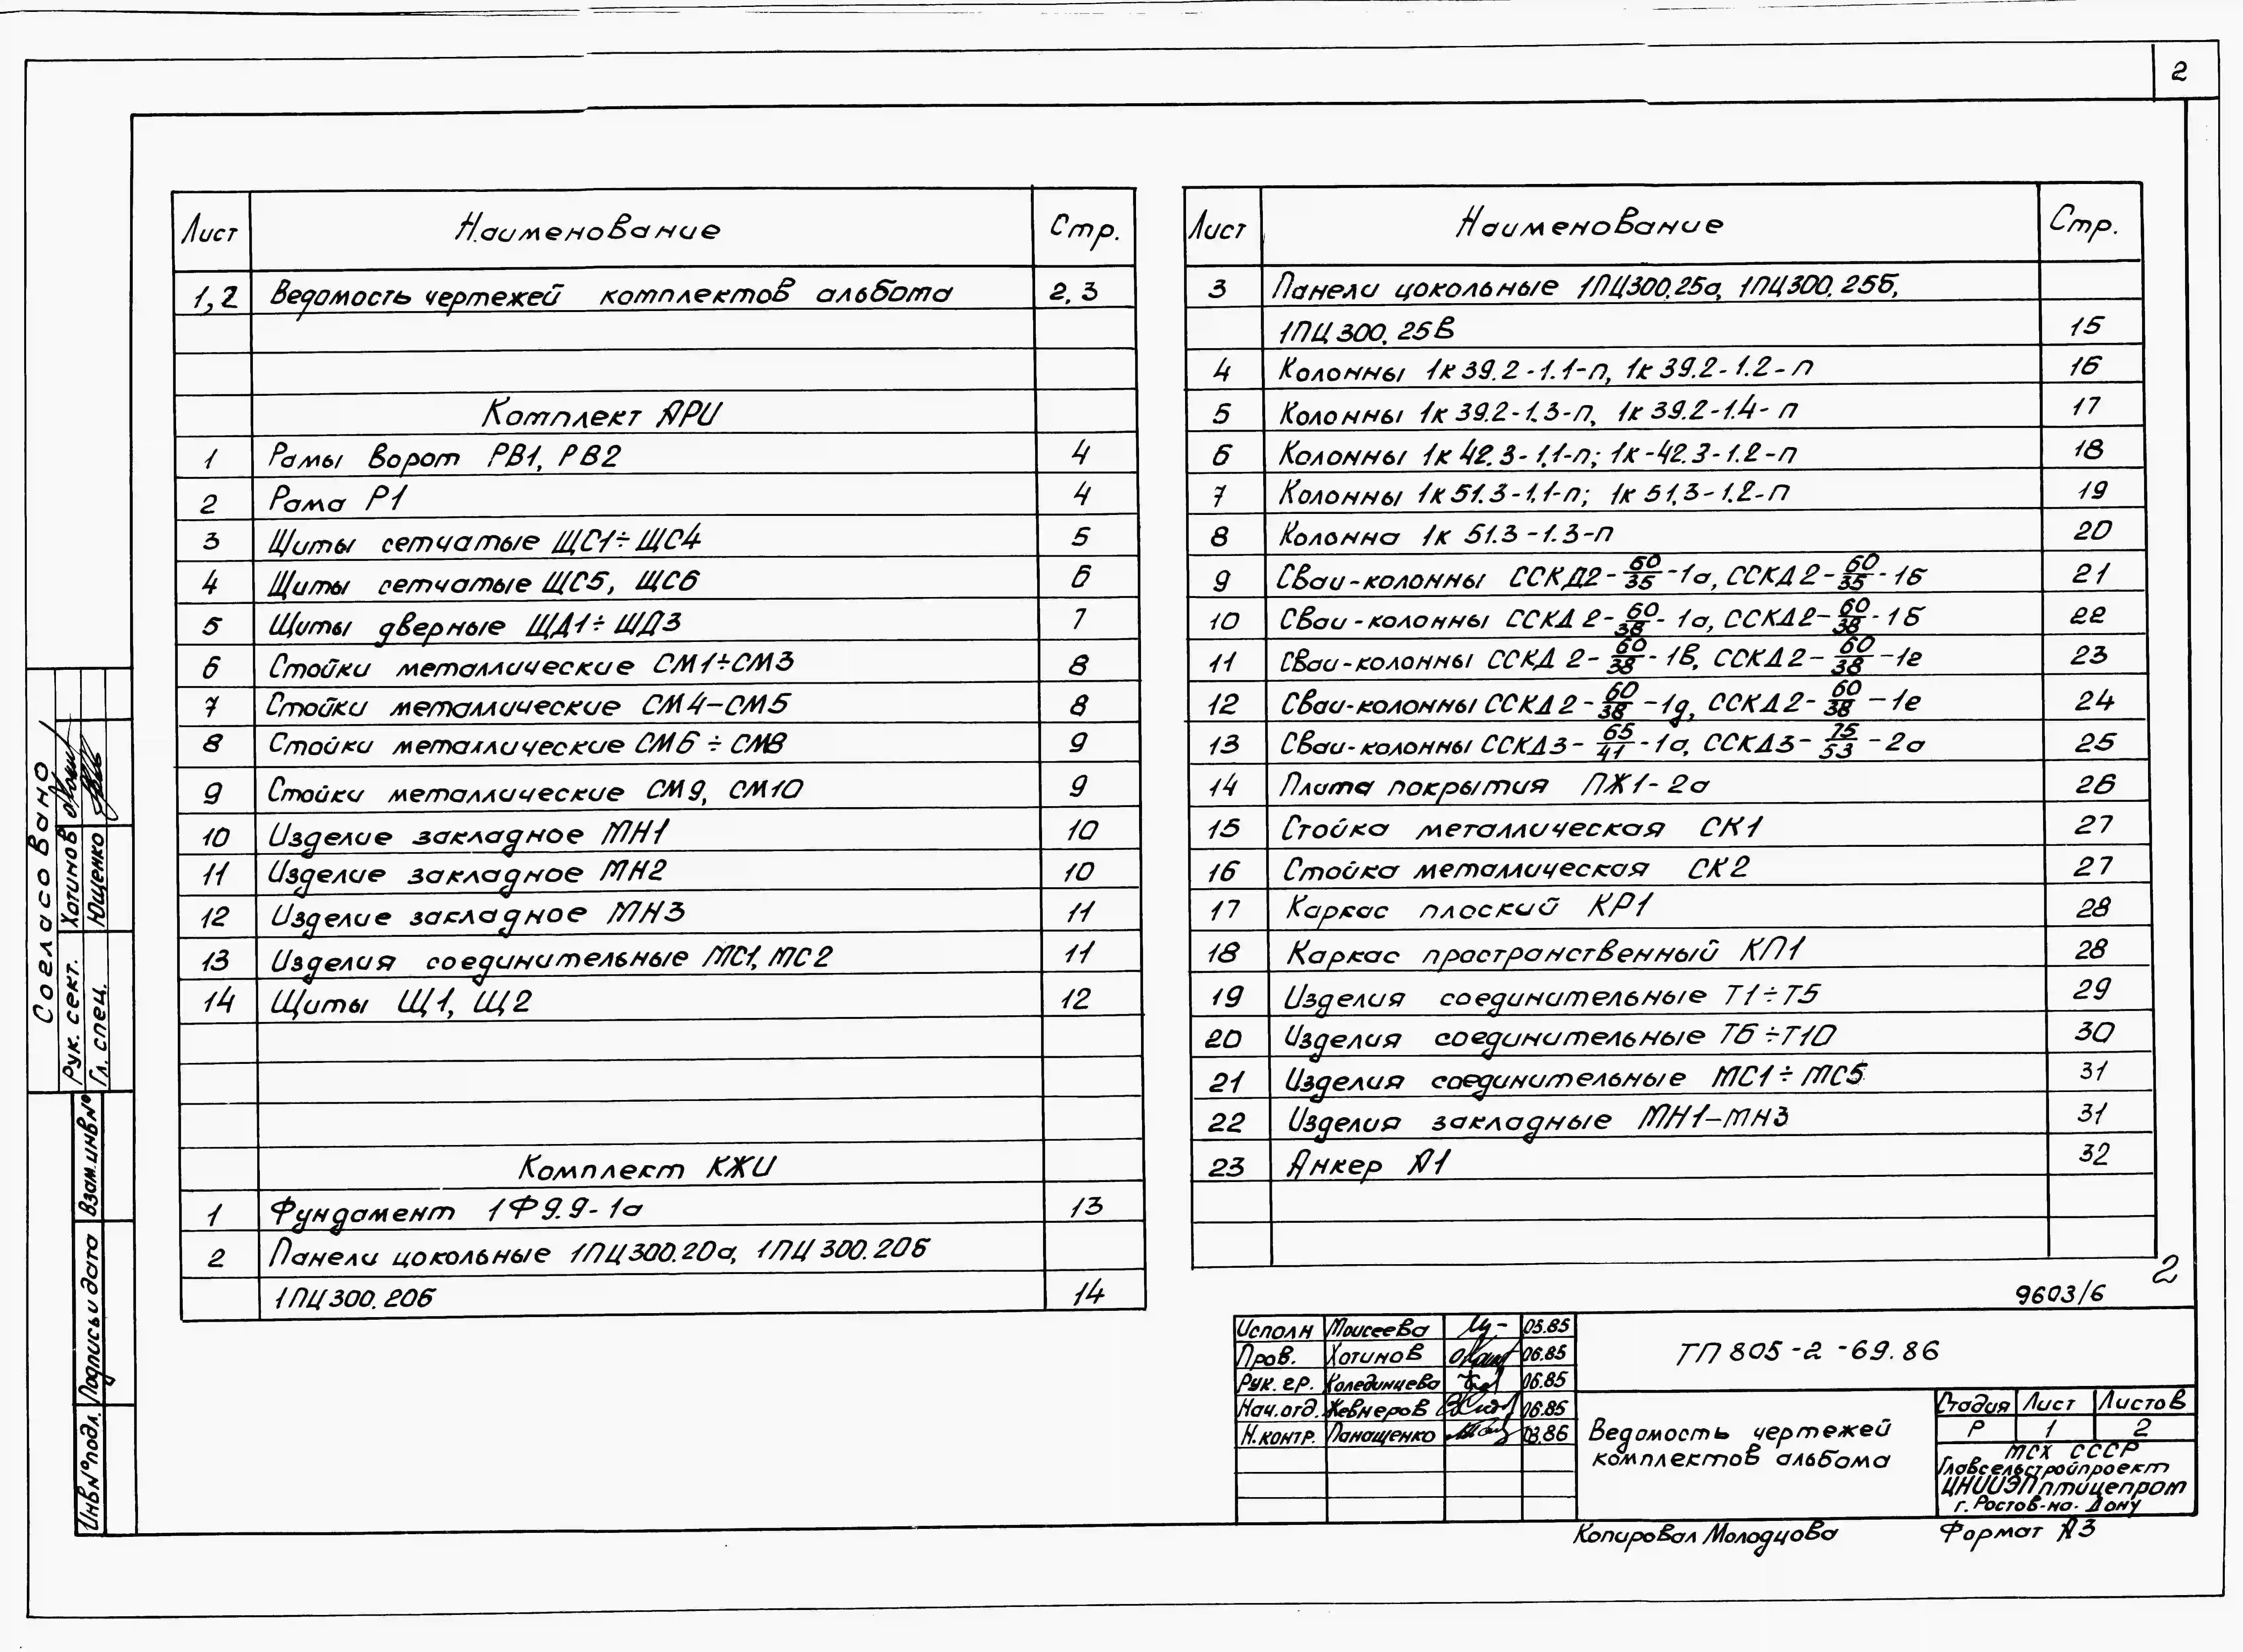 2
Лист Наименование Стр.
1,2 Ведомость чертежей комплектов альбома 2,3
Комплект АРИ
1 Рамы ворот РВ1, РВ2 4
2 Рама Р1 4
3 Щиты сетчатые ЩС1÷ЩС4 5
4 Щиты сетчатые ЩС5, ЩС6 6
5 Щиты дверные ЩД1÷ЩД3 7
6 Стойки металлические СМ1÷СМ3 8
7 Стойки металлические СМ4-СМ5 8
8 Стойки металлические СМ6÷СМ8 9
9 Стойки металлические СМ9, СМ10 9
10 Изделие закладное МН1 10
11 Изделие закладное МН2 10
12 Изделие закладное МН3 11
13 Изделия соединительные МС1, МС2 11
14 Щиты Щ1, Щ2 12
Комплект КЖИ
1 Фундамент 1Ф9.9-1а 13
2 Панели цокольные 1ПЦ300.20а, 1ПЦ300.20б
1ПЦ300.20б 14
Лист Наименование Стр.
3 Панели цокольные 1ПЦ300.25а, 1ПЦ300.25б,
1ПЦ300.25в 15
4 Колонны 1к39.2-1.1-п, 1к39.2-1.2-п 16
5 Колонны 1к39.2-1.3-п, 1к39.2-1.4-п 17
6 Колонны 1к42.3-1.1-п; 1к-42.3-1.2-п 18
7 Колонны 1к51.3-1.1-п; 1к51.3-1.2-п 19
8 Колонна 1к 51.3-1.3-п 20
9 Сваи-колонны ССКД2-60/35-1а, ССКД2-60/35-1б 21
10 Сваи-колонны ССКД2-60/38-1а, ССКД2-60/38-1б 22
11 Сваи-колонны ССКД2-60/38-1в, ССКД2-60/38-1г 23
12 Сваи-колонны ССКД2-60/38-1д, ССКД2-60/38-1е 24
13 Сваи-колонны ССКД3-65/41-1а, ССКД3-75/53-2а 25
14 Плита покрытия ПЖ1-2а 26
15 Стойка металлическая СК1 27
16 Стойка металлическая СК2 27
17 Каркас плоский КР1 28
18 Каркас пространственный КП1 28
19 Изделия соединительные Т1÷Т5 29
20 Изделия соединительные Т6÷Т10 30
21 Изделия соединительные МС1÷МС5 31
22 Изделия закладные МН1-МН3 31
23 Анкер А1 32
2
9603/6
Исполн Моисеева 05.85
Пров. Хотинов 06.85
Рук. гр. Колединцева 06.85
Нач.отд. Жевнеров 06.85
Н.контр. Панащенко 03.86
ТП 805-2-69.86
Ведомость чертежей
комплектов альбома
Стадия Лист Листов
Р 1 2
МСХ СССР
Главсельстройпроект
ЦНИИЭПптицепром
г. Ростов-на-Дону
Копировал Молодцова Формат А3
Согласовано
Рук. сект. Хотинов
Гл. спец. Ющенко
Взам.инв№
Подпись и дата
Инв№подл.